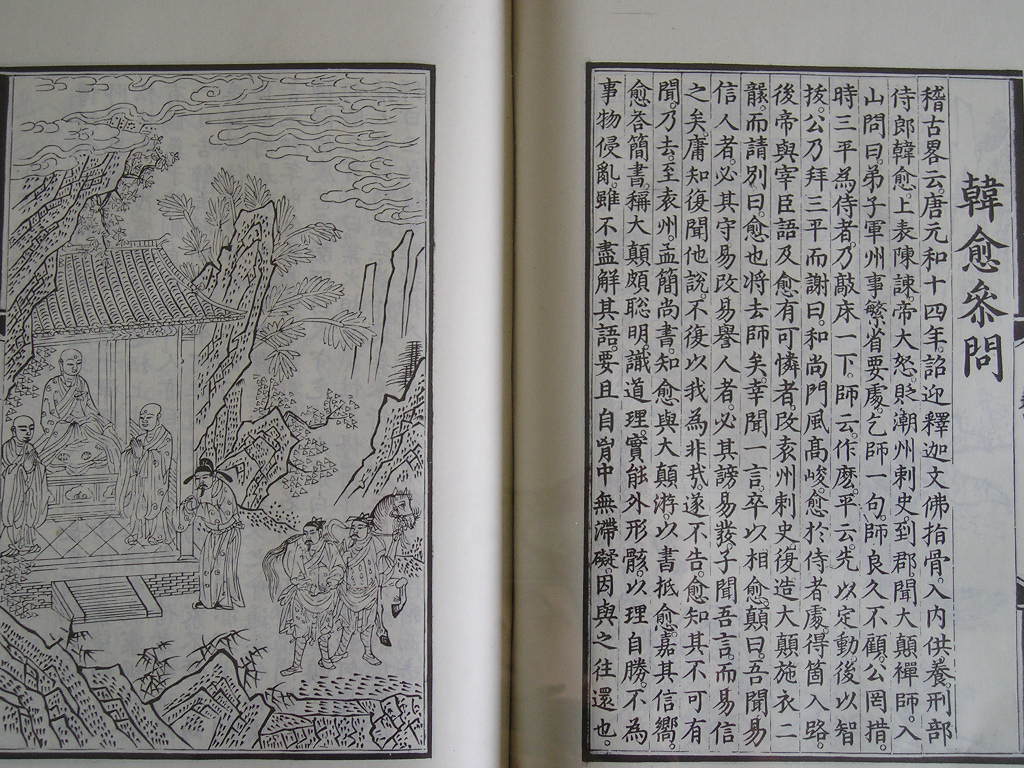 韓愈叅問
稽古畧云。唐元和十四年詔迎釋迦文佛指骨。入内供養刑部
侍郎韓愈上表陳諫。帝大怒。貶潮州刺史。到郡聞大顛禪師。入
山問曰。弟子軍州事繁省要處。乞師一句。師良久不顧公罔措。
時三平為侍者。乃敲床一下。師云。作麽。平云。先以定動後以智
拔。公乃拜三平而謝曰。和尚門風高峻。愈於侍者處得箇入路。
後帝與宰臣語及愈有可憐者。改袁州刺史。後造大顛施衣二
襲。而請別曰。愈也将去師矣。幸聞一言。卒以相愈。顛曰。吾聞易
信人者。必其守易改易譽人者。必其謗易發。子聞吾言而易信
之矣。庸知後聞他說。不復以我為非㢤。遂不告。愈知其不可有
聞。乃去。至袁州孟簡尚書。知愈與大顛游。以書抵愈。嘉其信嚮。
愈荅簡書。稱大顛頗聰明識道理。實能外形骸。以理自勝不為
事物侵亂。雖不盡解其語。要且自胷中無滯礙。因與之往還也。